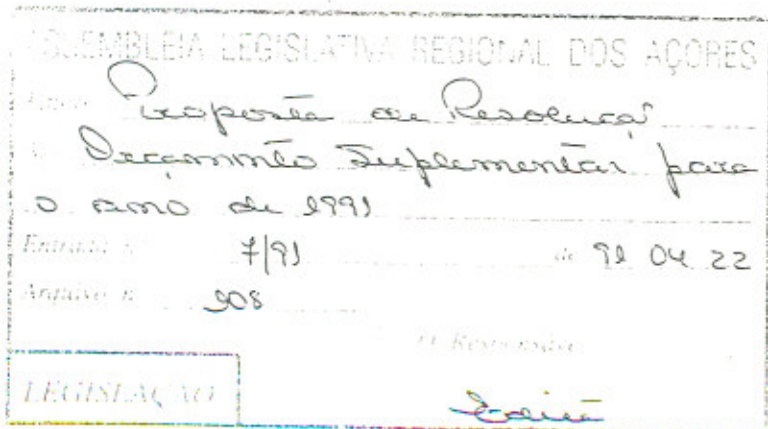 ASSEMBLEIA LEGISLATIVA REGIONAL DOS AÇORES
Proposta de Resolução
Orçamento Suplementar para
o ano de 1991
Entrada n.º 7/91 de 91 04 22
Arquivo n.º 108
O Responsável
LEGISLAÇÃO